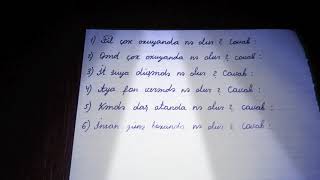 1) Fil çox oxuyanda nə olur? Cavab:
2) Qənd çox oxuyanda nə olur? Cavab:
3) İt suya düşəndə nə olur? Cavab:
4) Aya fən verəndə nə olur? Cavab:
5) Kəndə daş atanda nə olur? Cavab:
6) İnsan gün baxanda nə olur? Cavab: